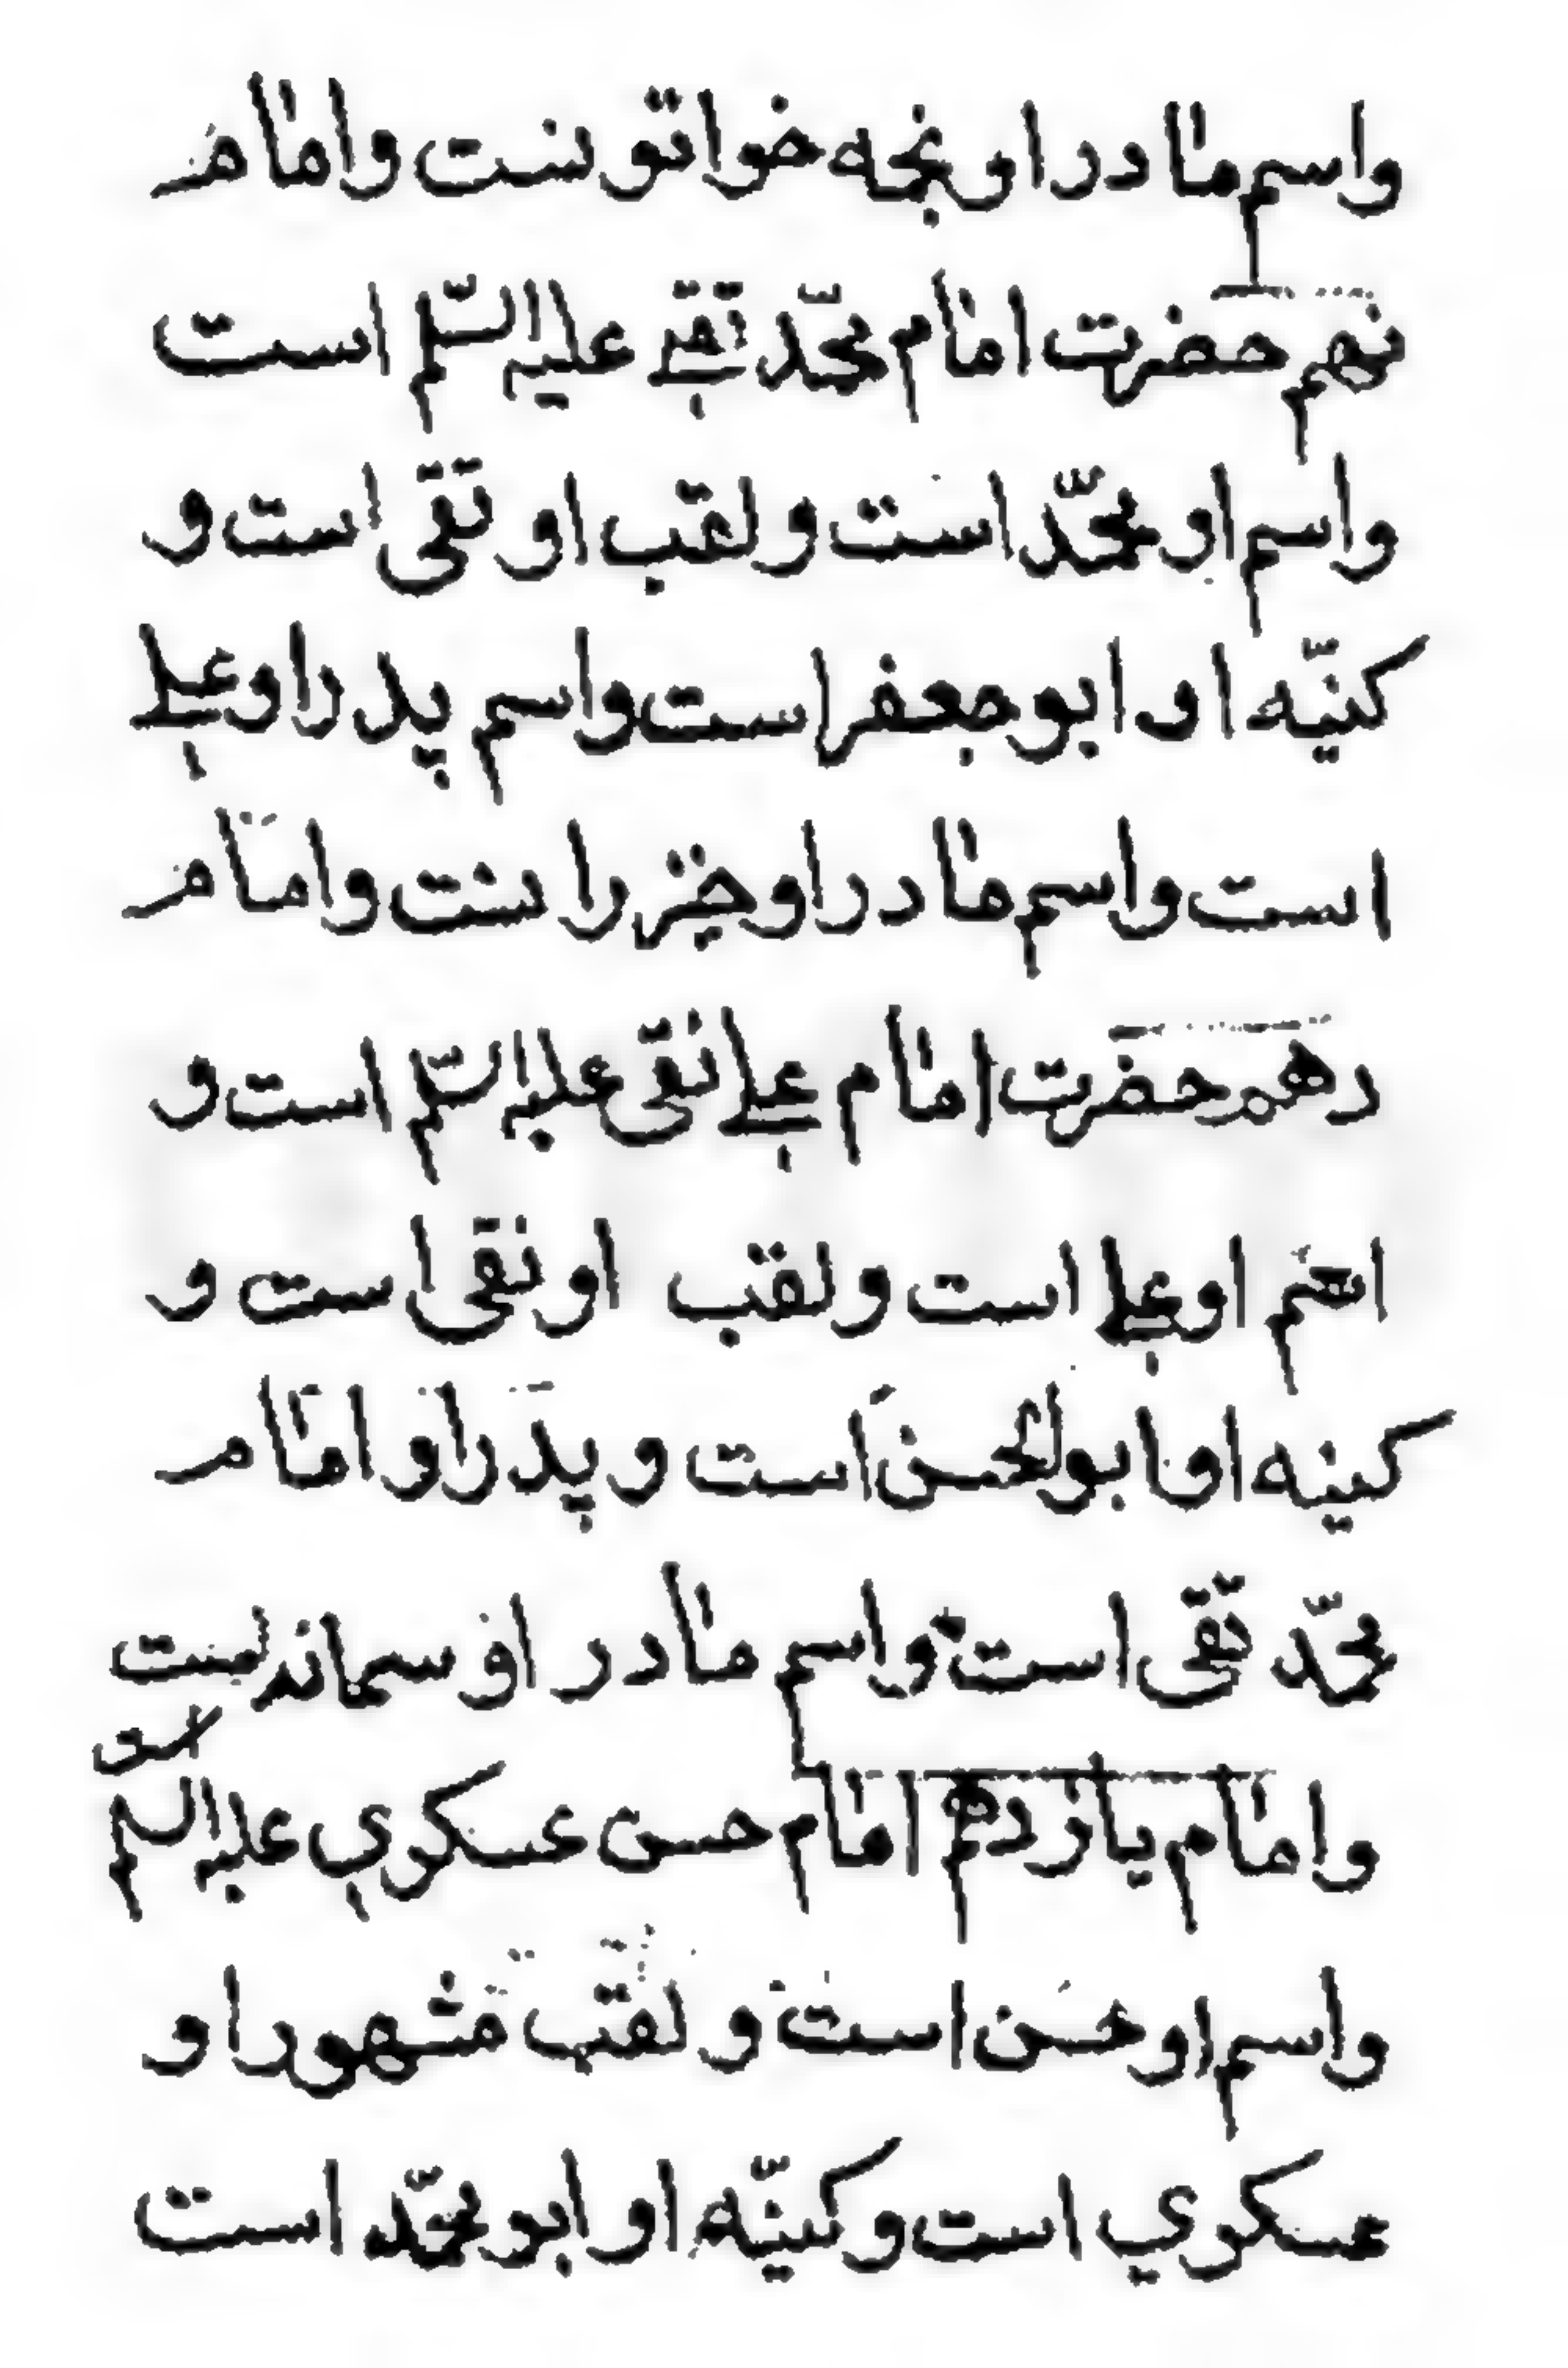 واسم مادر او نجمه خواتونست وامام
نهم حضرت امام محمّد تقی علیه السّلم است
واسم او محمّد است ولقب او تقی است و
کنیّه او ابو جعفر است واسم پدر او علی
است واسم مادر او خیزرانست وامام
دهم حضرت امام علی نقی علیه السّلم است و
اسم او علی است ولقب او نقی است و
کنیه او ابو الحسن است و پدر او امام
محمّد تقی است واسم مادر او سمانه
است
وامام یازدهم امام حسن عسکري علیه السلم
واسم او حسن است و لقب مشهور او
عسکري است وکنیّه او ابو محمّد است